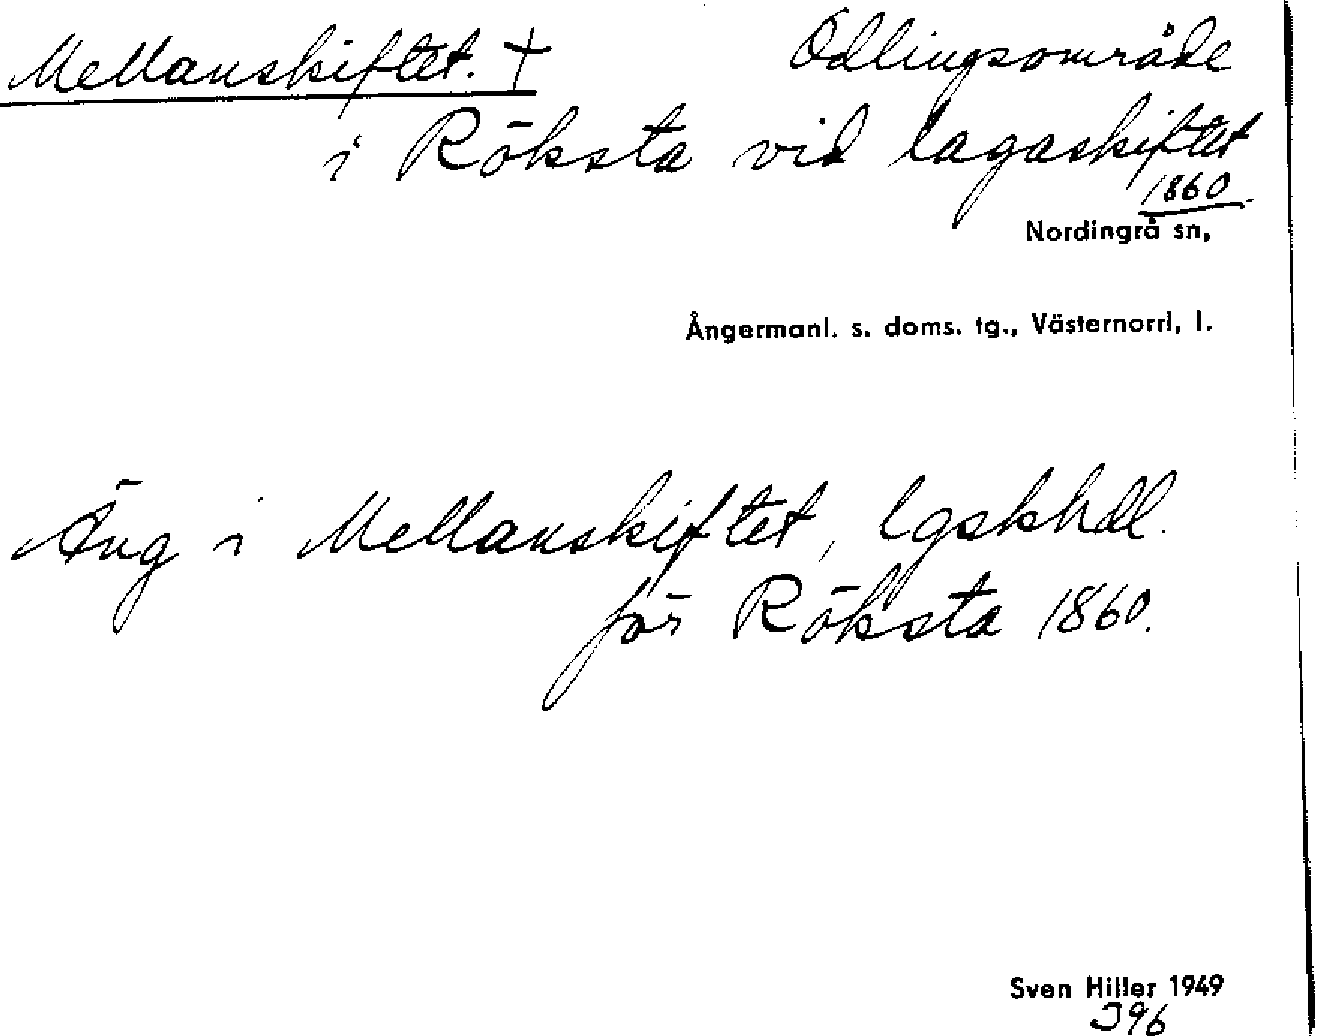 Mellanskiftet. † Odlingsområde
i Röksta vid lagaskiftet
1860.
Nordingrå sn,
Ångermanl. s. doms. tg., Västernorrl, l.
Äng i Mellanskiftet, lgskhdl.
för Röksta 1860.
Sven Hiller 1949
396